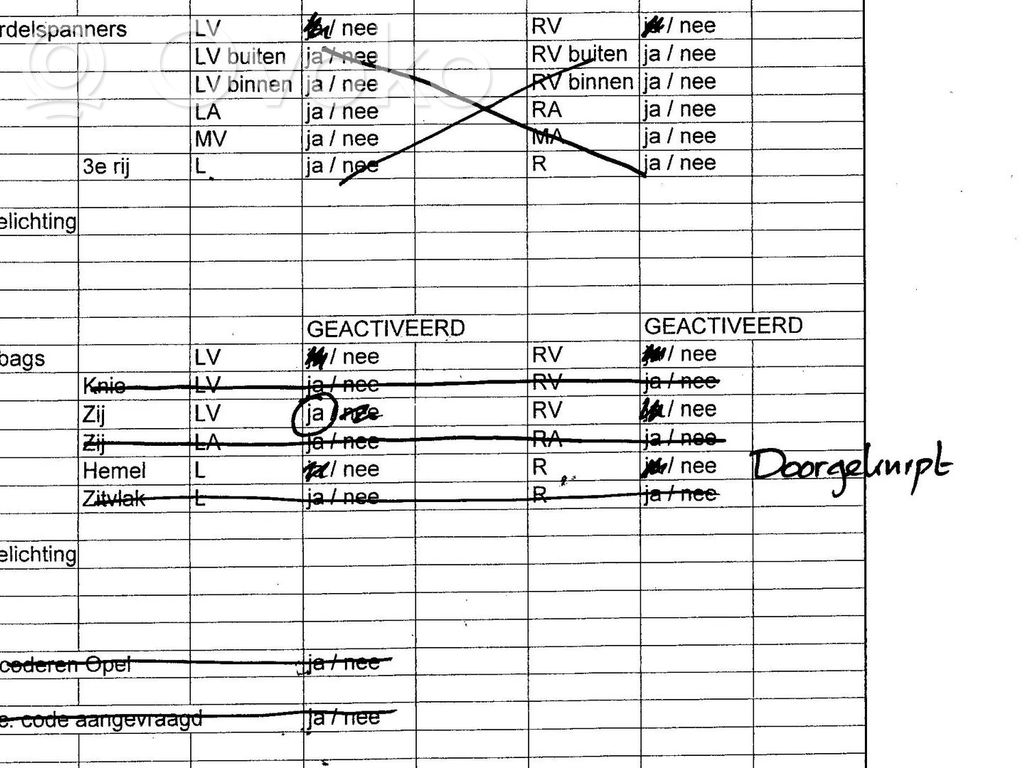 rdelspanners LV ja / nee RV ja / nee
LV buiten ja / nee RV buiten ja / nee
LV binnen ja / nee RV binnen ja / nee
LA ja / nee RA ja / nee
MV ja / nee MA ja / nee
3e rij L ja / nee R ja / nee
elichting
GEACTIVEERD GEACTIVEERD
bags LV / nee RV / nee
Knie LV ja / nee RV ja / nee
Zij LV ja / nee RV / nee
Zij LA ja / nee RA ja / nee
Hemel L / nee R / nee Doorgeknipt
Zitvlak L ja / nee R ja / nee
elichting
coderen Opel ja / nee
e. code aangevraagd ja / nee
Ovoko